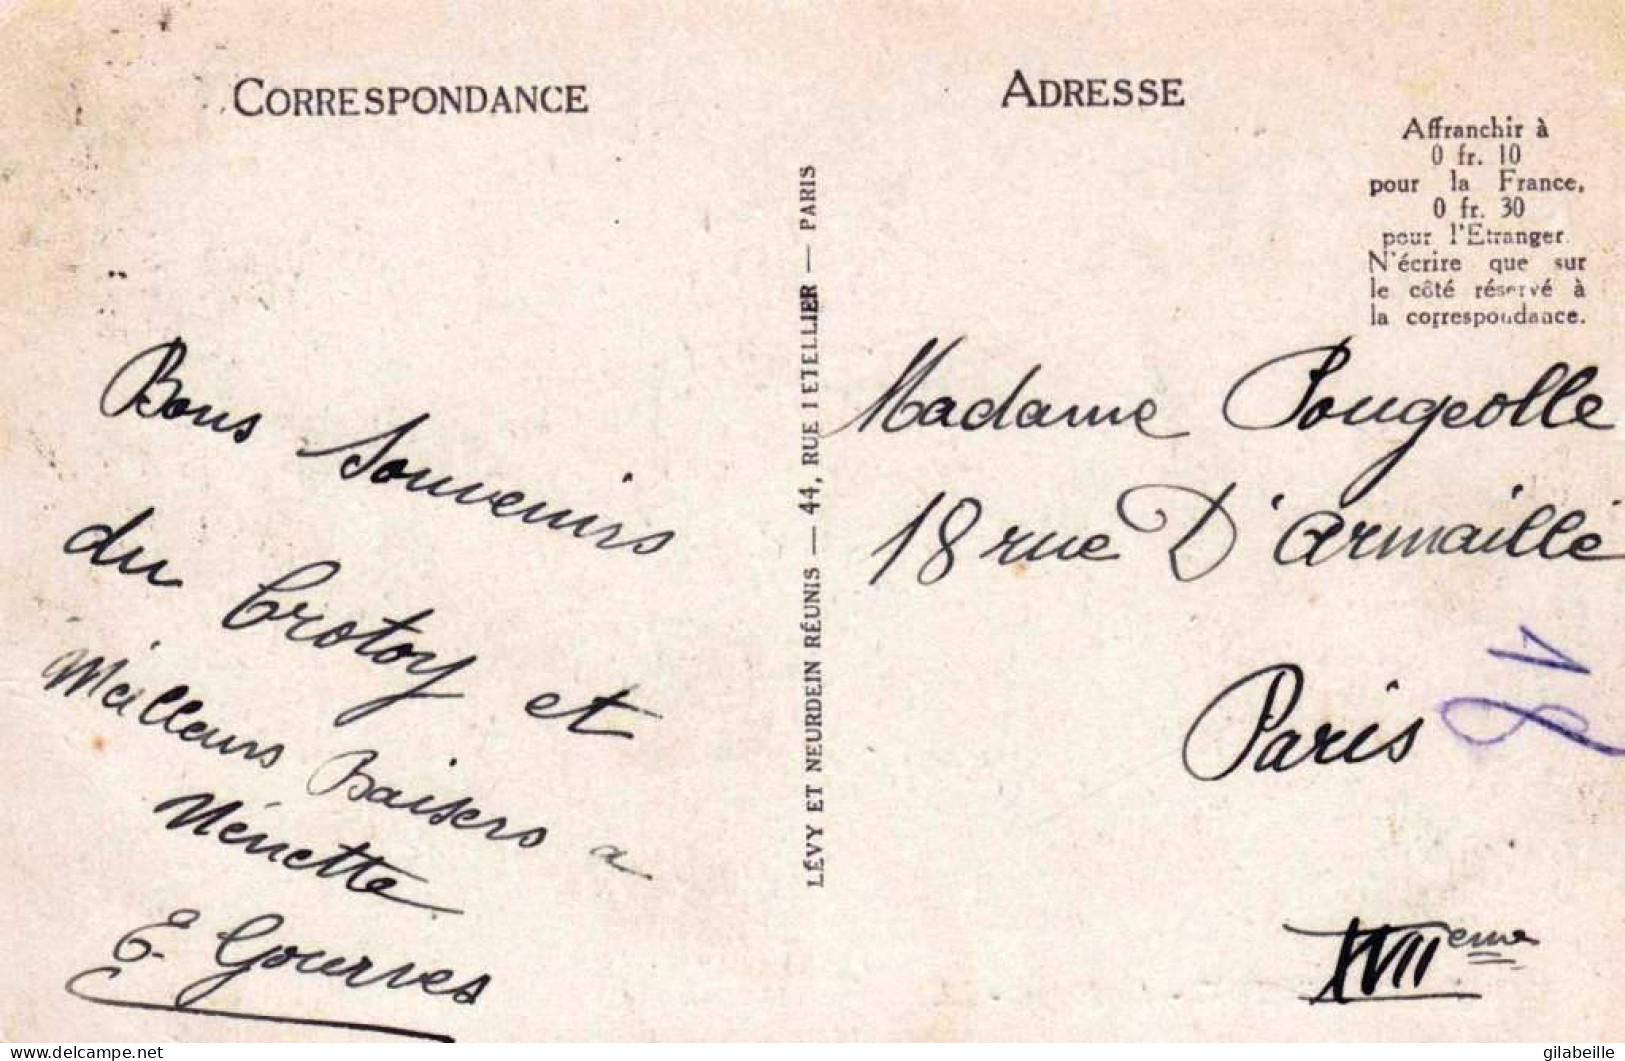 CORRESPONDANCE
Bons Souvenirs
du Crotoy et
Meilleurs Baisers a
Nénette
E. Gourves
LÉVY ET NEURDEIN RÉUNIS — 44, RUE LETELLIER — PARIS
ADRESSE
Affranchir à
0 fr. 10
pour la France,
0 fr. 30
pour l'Etranger.
N'écrire que sur
le côté réservé à
la correspondance.
Madame Pougeolle
18 rue D'Armaillé
Paris
18
XVIIeme
Delcampe.net
gilabeille